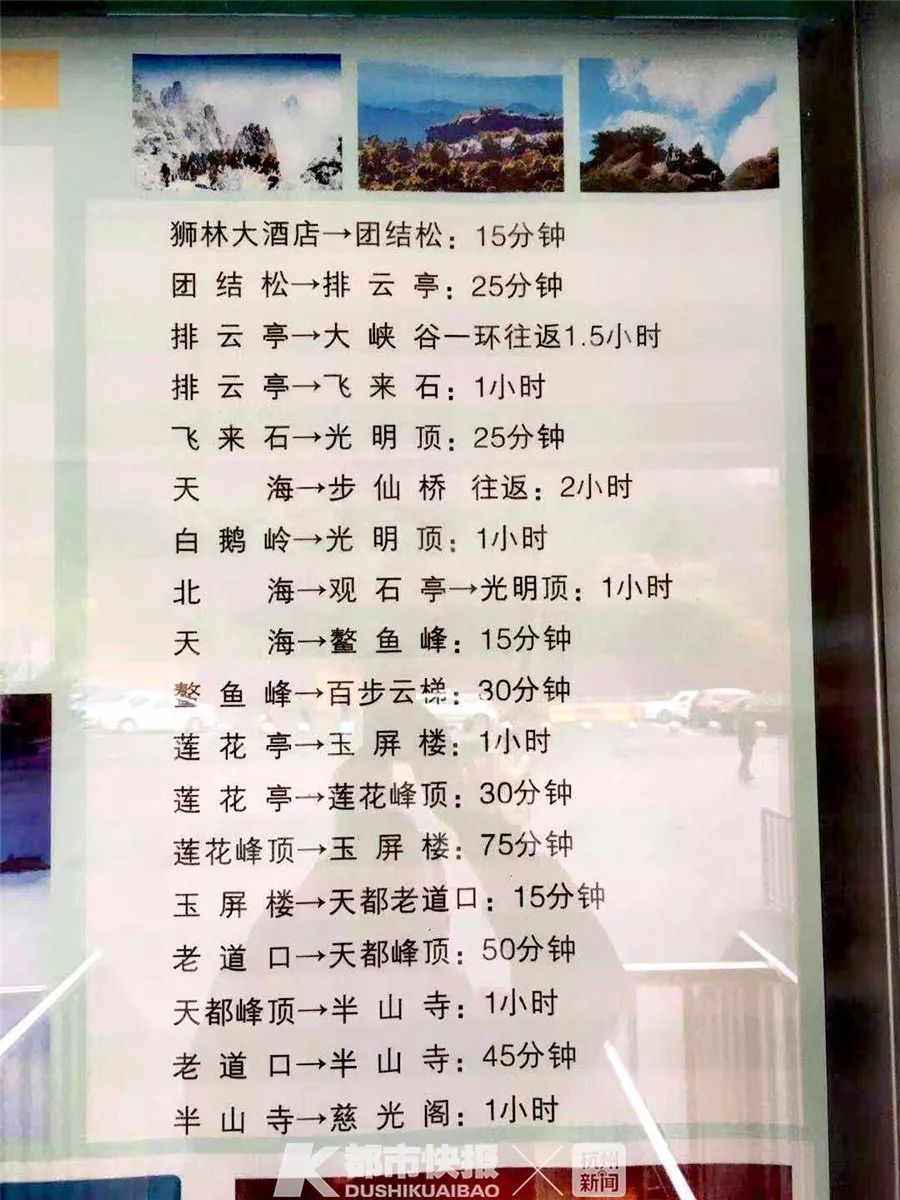 狮林大酒店→团结松：15分钟
团结松→排云亭：25分钟
排云亭→大峡谷一环往返1.5小时
排云亭→飞来石：1小时
飞来石→光明顶：25分钟
天海→步仙桥 往返：2小时
白鹅岭→光明顶：1小时
北海→观石亭→光明顶：1小时
天海→鳌鱼峰：15分钟
鳌鱼峰→百步云梯：30分钟
莲花亭→玉屏楼：1小时
莲花亭→莲花峰顶：30分钟
莲花峰顶→玉屏楼：75分钟
玉屏楼→天都老道口：15分钟
老道口→天都峰顶：50分钟
天都峰顶→半山寺：1小时
老道口→半山寺：45分钟
半山寺→慈光阁：1小时
都市快报 杭州
DUSHIKUAIBAO 新闻